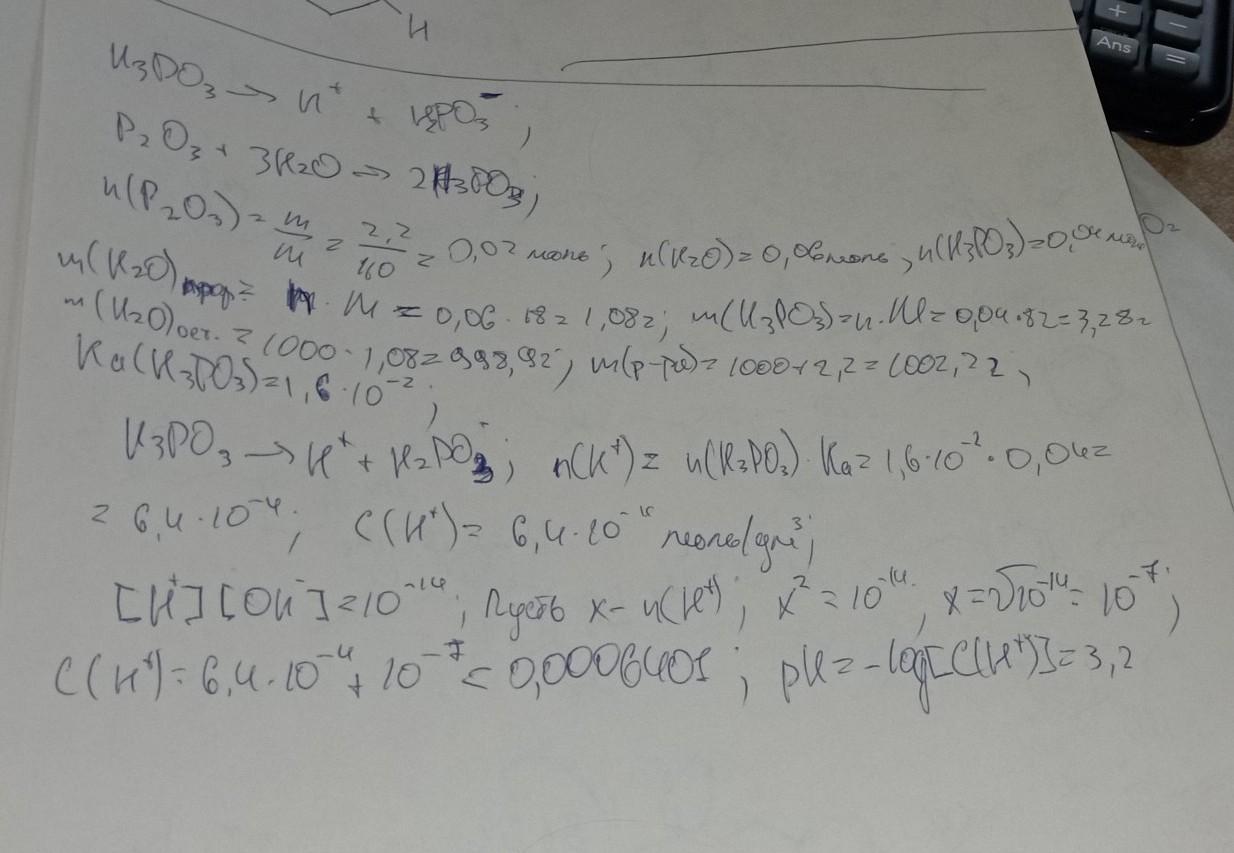 H
+
-
Ans
=
H₃PO₃ → H⁺ + H₂PO₃⁻;
P₂O₃ + 3H₂O → 2H₃PO₃;
n(P₂O₃) = m/M = 2,2/110 = 0,02 моль; n(H₂O) = 0,06 моль, n(H₃PO₃) = 0,04 моль
m(H₂O) = n · M = 0,06 · 18 = 1,08г; m(H₃PO₃) = n · M = 0,04 · 82 = 3,28г
m(H₂O)ост. = 1000 - 1,08 = 998,92; m(р-ра) = 1000 + 2,2 = 1002,2г,
Ka(H₃PO₃) = 1,6 · 10⁻²;
H₃PO₃ → H⁺ + H₂PO₃⁻; n(H⁺) = n(H₃PO₃) · Ka = 1,6 · 10⁻² · 0,04 =
= 6,4 · 10⁻⁴; C(H⁺) = 6,4 · 10⁻⁴ моль/дм³;
[H⁺][OH⁻] = 10⁻¹⁴; Пусть x - n(H⁺); x² = 10⁻¹⁴, x = √10⁻¹⁴ = 10⁻⁷;
C(H⁺) = 6,4 · 10⁻⁴ + 10⁻⁷ = 0,0006401; pH = -log[C(H⁺)] = 3,2